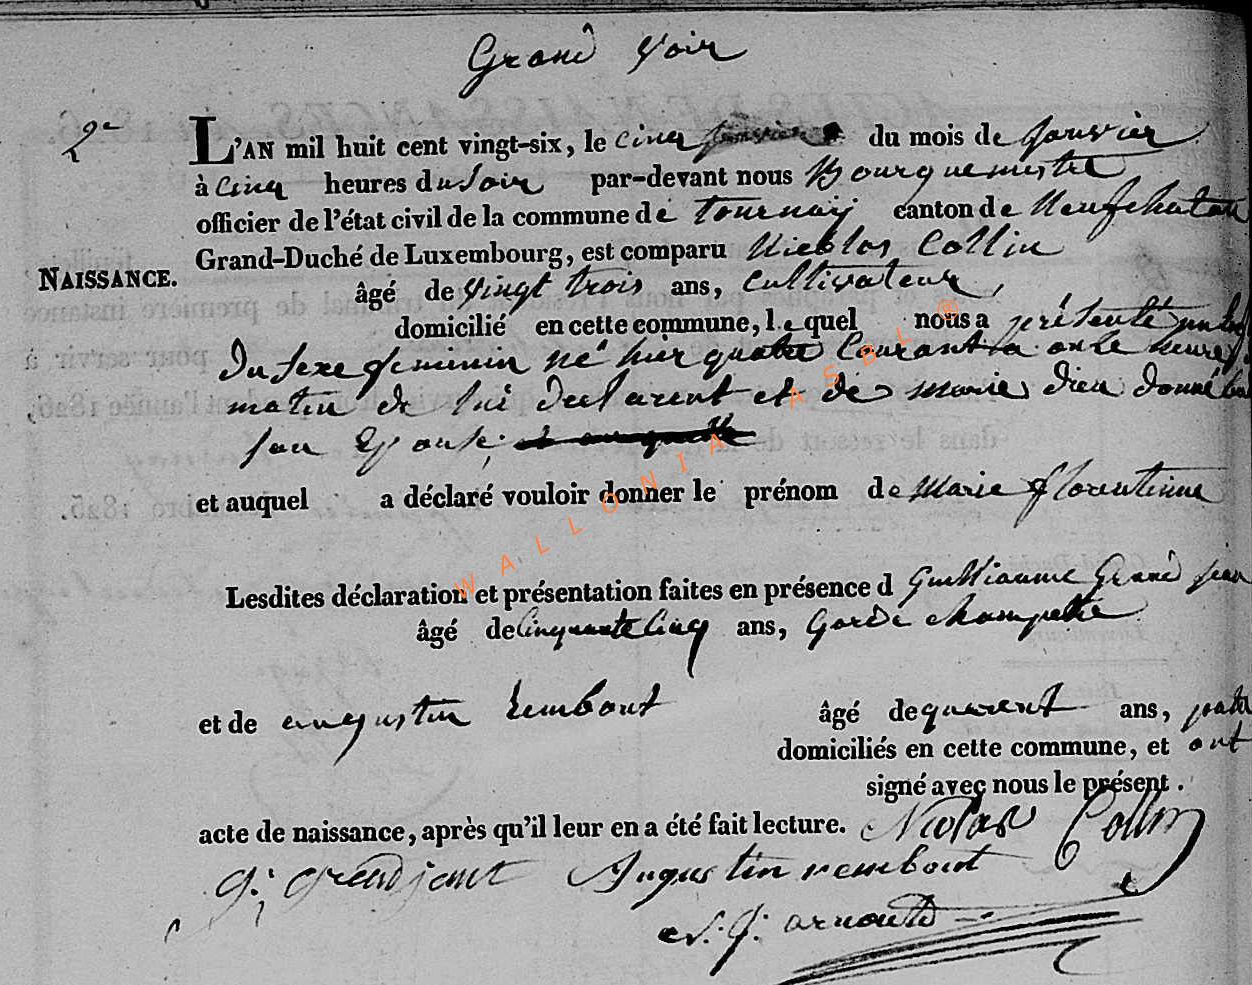 Grand Voir
2e
L'AN mil huit cent vingt-six, le cinq du mois de Janvier
à cinq heures du Soir par-devant nous Bourguemestre
officier de l'état civil de la commune de tournay canton de Neufchateau
Grand-Duché de Luxembourg, est comparu Nicolas Collin
NAISSANCE.
âgé de vingt trois ans, Cultivateur,
domicilié en cette commune, lequel nous a présenté un
du sexe feminin né hier quatre Courant a onze heures
matin de lui declarent et de marie dieu donné
son Epouse,
et auquel a déclaré vouloir donner le prénom de Marie florentinne
Lesdites déclaration et présentation faites en présence d Guilliaume Grand jean
âgé de Cinquante Cinq ans, Garde champetre
et de augustin Rembout âgé de quarent ans,
domiciliés en cette commune, et ont
signé avec nous le présent.
acte de naissance, après qu'il leur en a été fait lecture. Nicolas Collin
G: grandjent Augustin rembout
J: arnould
WALLONIA ASBL ®